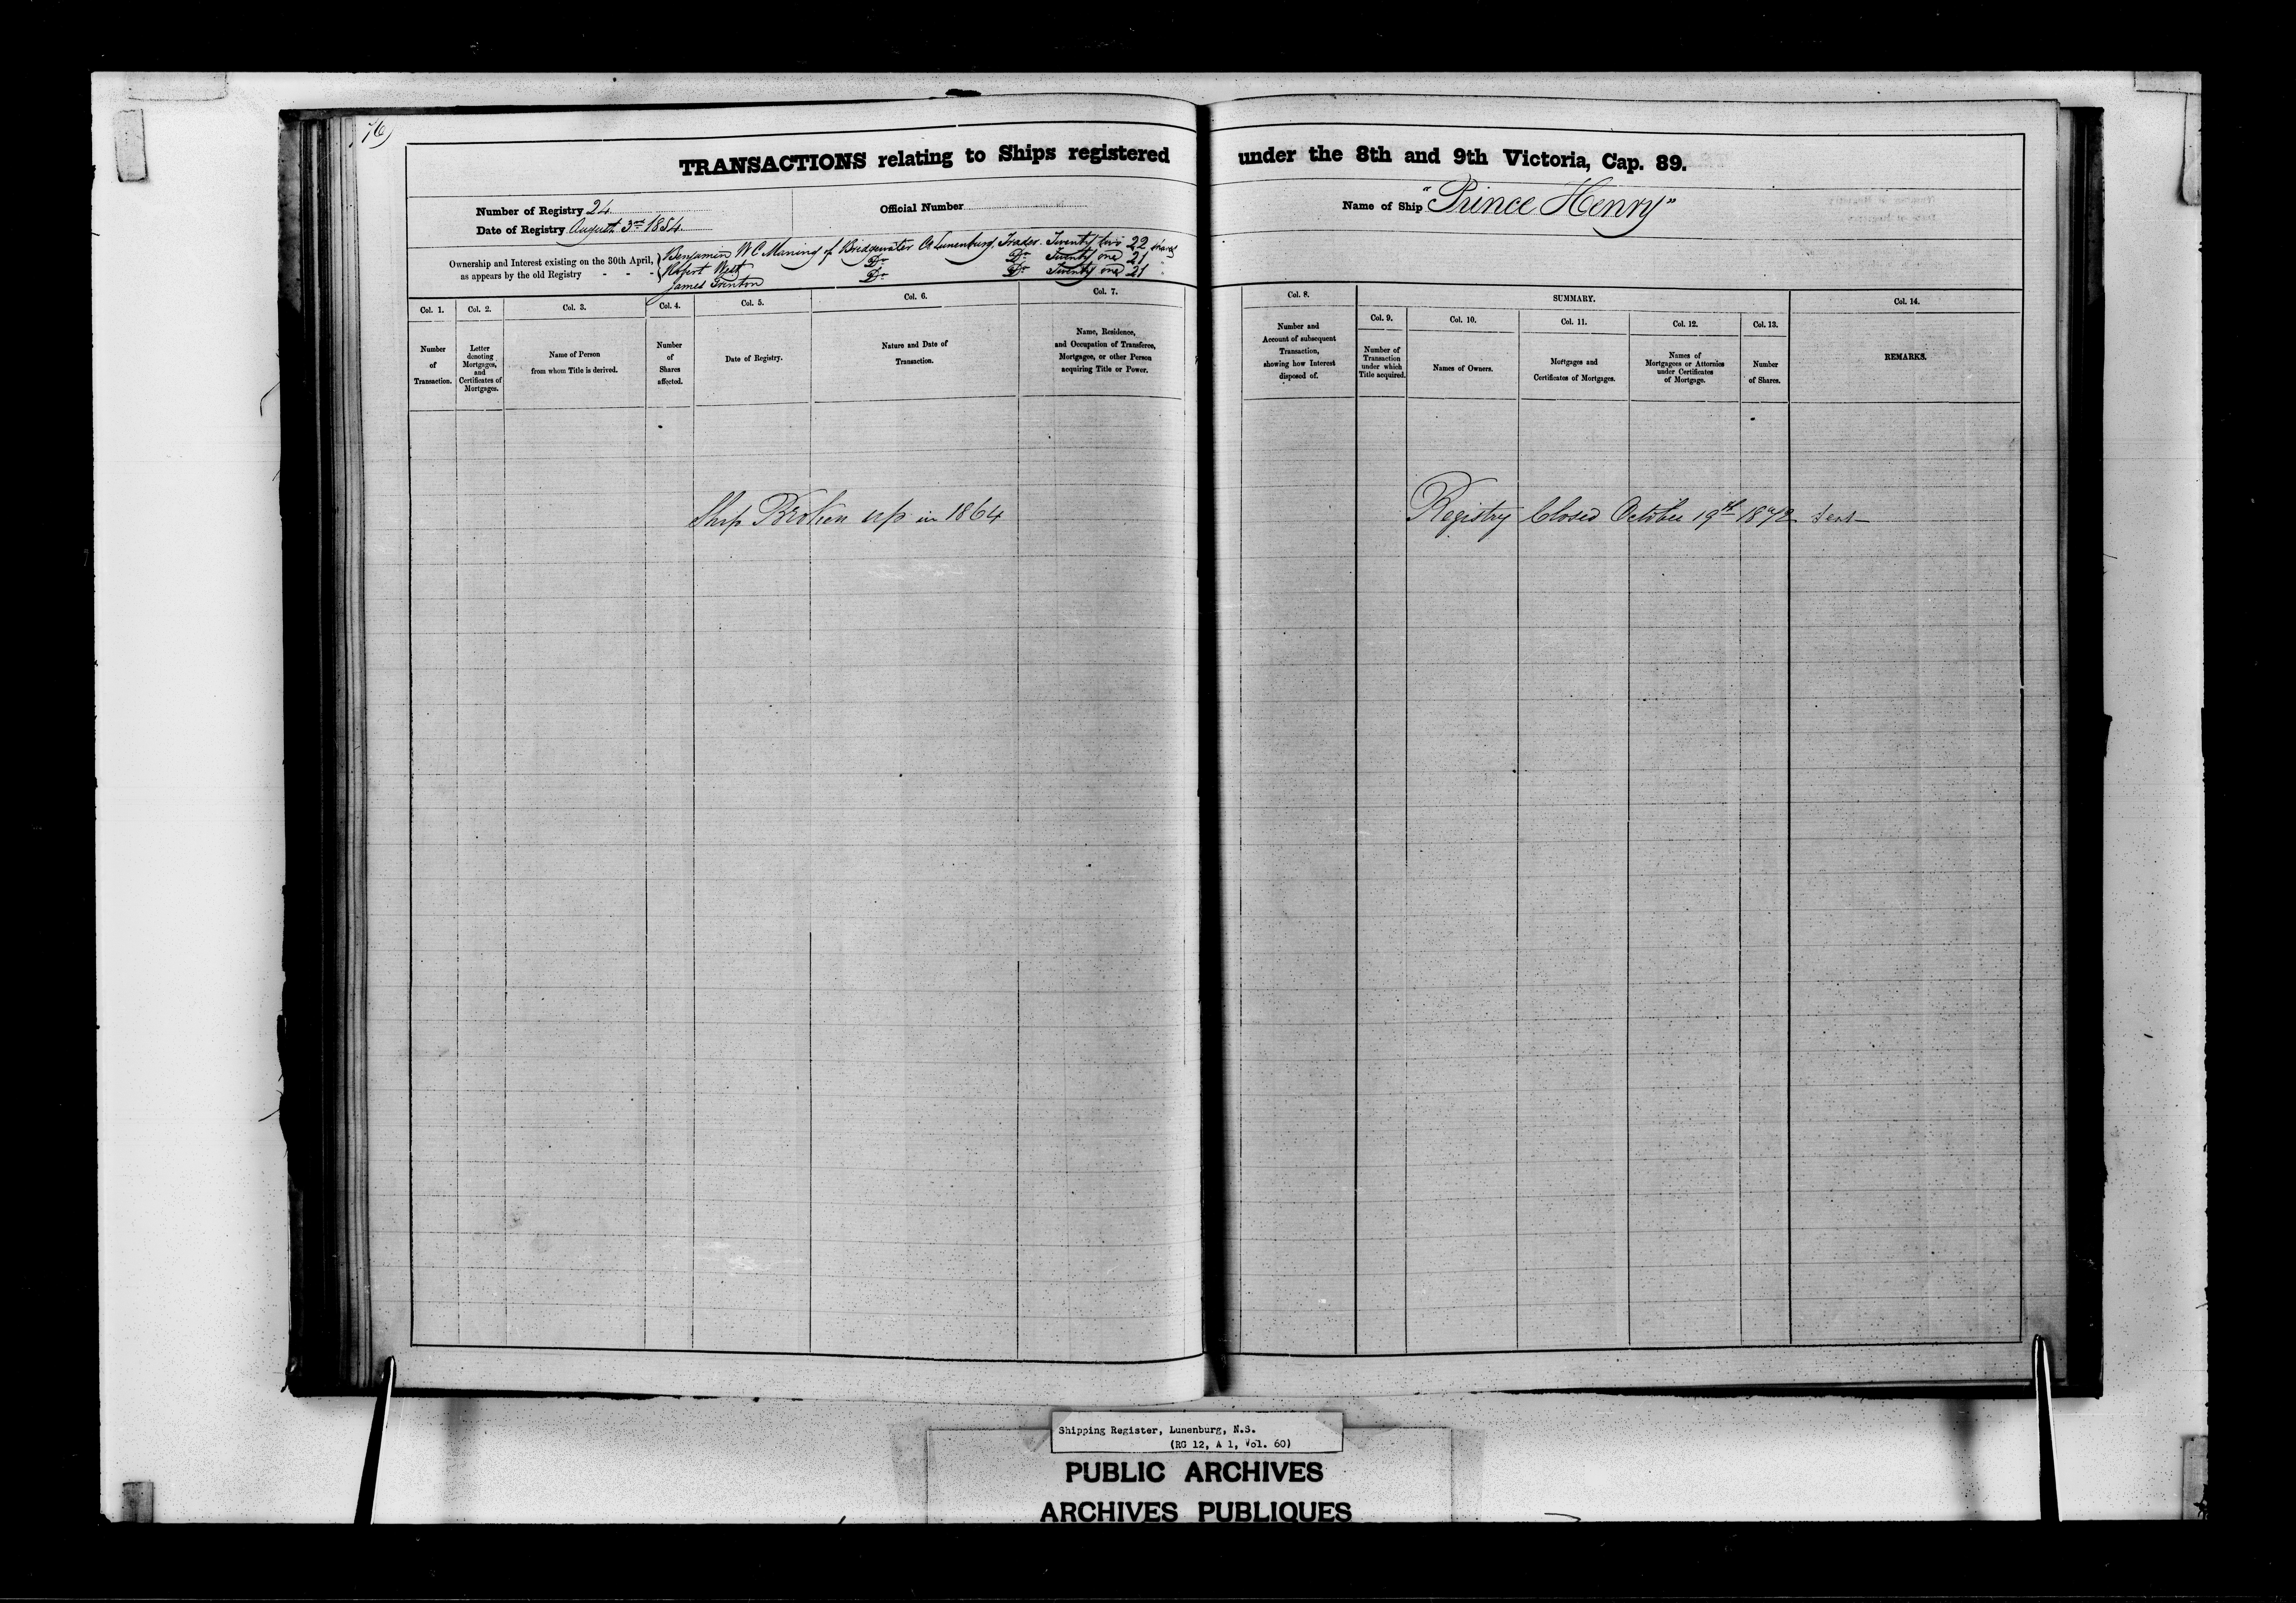 76)
TRANSACTIONS relating to Ships registered under the 8th and 9th Victoria, Cap. 89.
Number of Registry 24
Official Number
Name of Ship "Prince Henry"
Date of Registry August 3rd 1854.
Ownership and Interest existing on the 30th April,
as appears by the old Registry - - -
Benjamin W C Maning of Bridgewater Co Lunenburg, Trader. Twenty two 22 shares
Robert West Do Do Twenty one 21 "
James Do Do Twenty one 21 "
Col. 1.
Number
of
Transaction.
Col. 2.
Letter
denoting
Mortgages,
and
Certificates of
Mortgages.
Col. 3.
Name of Person
from whom Title is derived.
Col. 4.
Number
of
Shares
affected.
Col. 5.
Date of Registry.
Col. 6.
Nature and Date of
Transaction.
Col. 7.
Name, Residence,
and Occupation of Transferee,
Mortgagee, or other Person
acquiring Title or Power.
Col. 8.
Number and
Account of subsequent
Transaction,
showing how Interest
disposed of.
SUMMARY.
Col. 9.
Number of
Transaction
under which
Title acquired.
Col. 10.
Names of Owners.
Col. 11.
Mortgages and
Certificates of Mortgages.
Col. 12.
Names of
Mortgagees or Attornies
under Certificates
of Mortgage.
Col. 13.
Number
of Shares.
Col. 14.
REMARKS.
Ship Broken up in 1864
Registry Closed October 19th 1872
Shipping Register, Lunenburg, N.S.
(RG 12, A 1, Vol. 60)
PUBLIC ARCHIVES
ARCHIVES PUBLIQUES